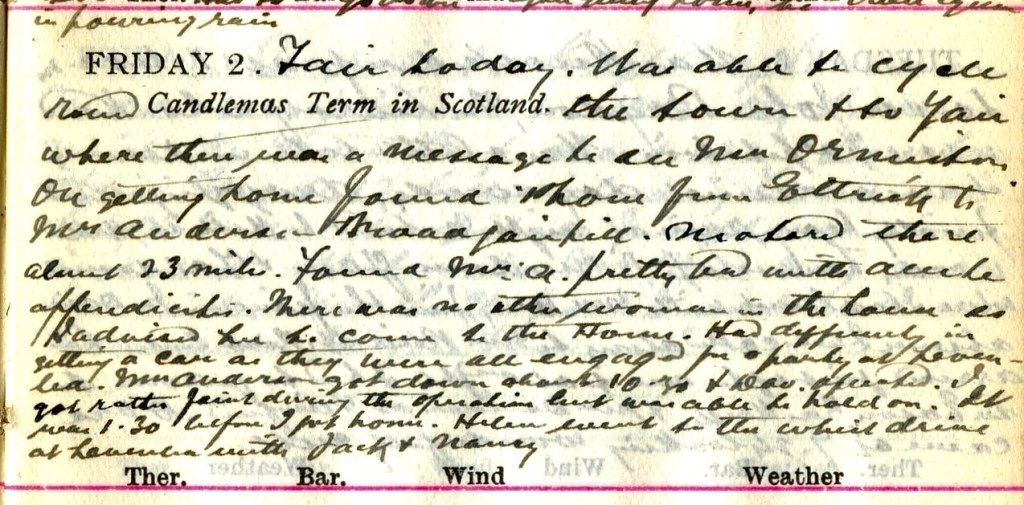 in pouring rain
FRIDAY 2. Fair today. Was able to cycle
round Candlemas Term in Scotland. the town & to Yair
where there was a message to see Mrs Ormiston.
On getting home found 'phone from Ettrick to
Mrs Anderson. Motored there
about 23 miles. Found Mrs A. pretty bad with acute
appendicitis. There was no other woman in the house so
I advised her to come to the Home. Had difficulty in
getting a car as they were all engaged for a party at Leven-
lea. Mrs Anderson got down about 10.30 & Dav. operated. I
got rather faint during the operation but was able to hold on. It
was 1.30 before I got home. Helen went to the whist drive
at Levenlea with Jack & Nancy
Ther. Bar. Wind Weather